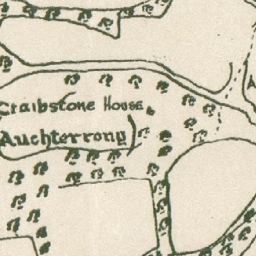 Craibstone House
Auchterrony
A